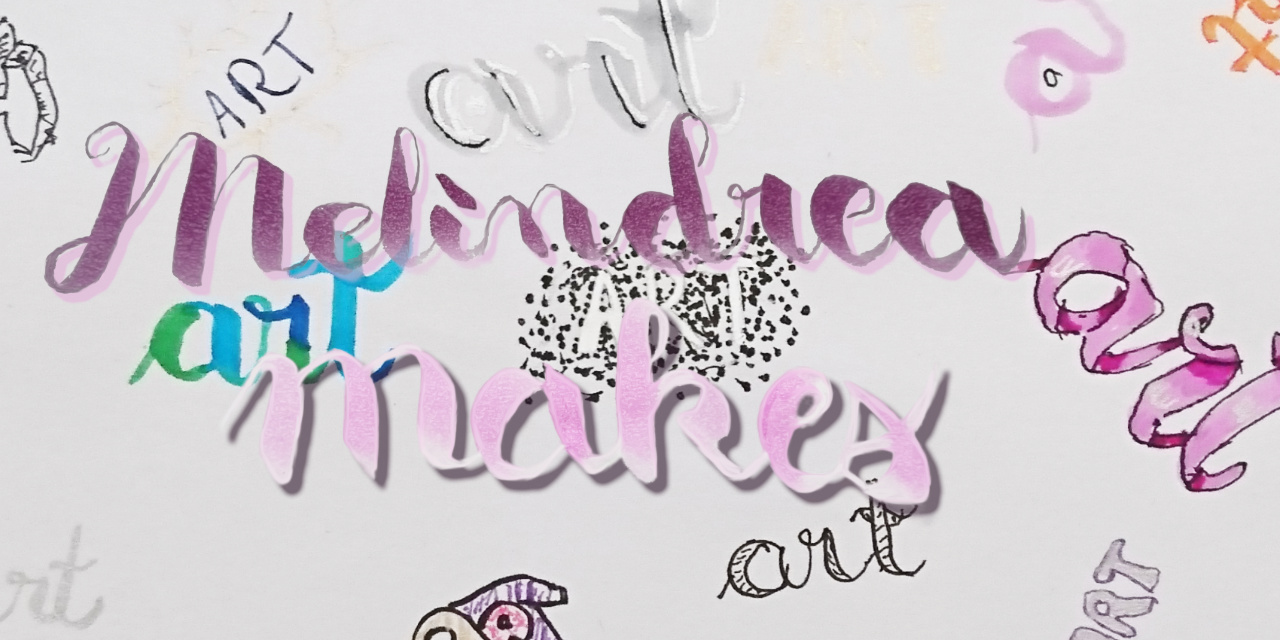 ART
art
ART
a
a
Melindrea
art
ART
art
makes
art
art
ART
a